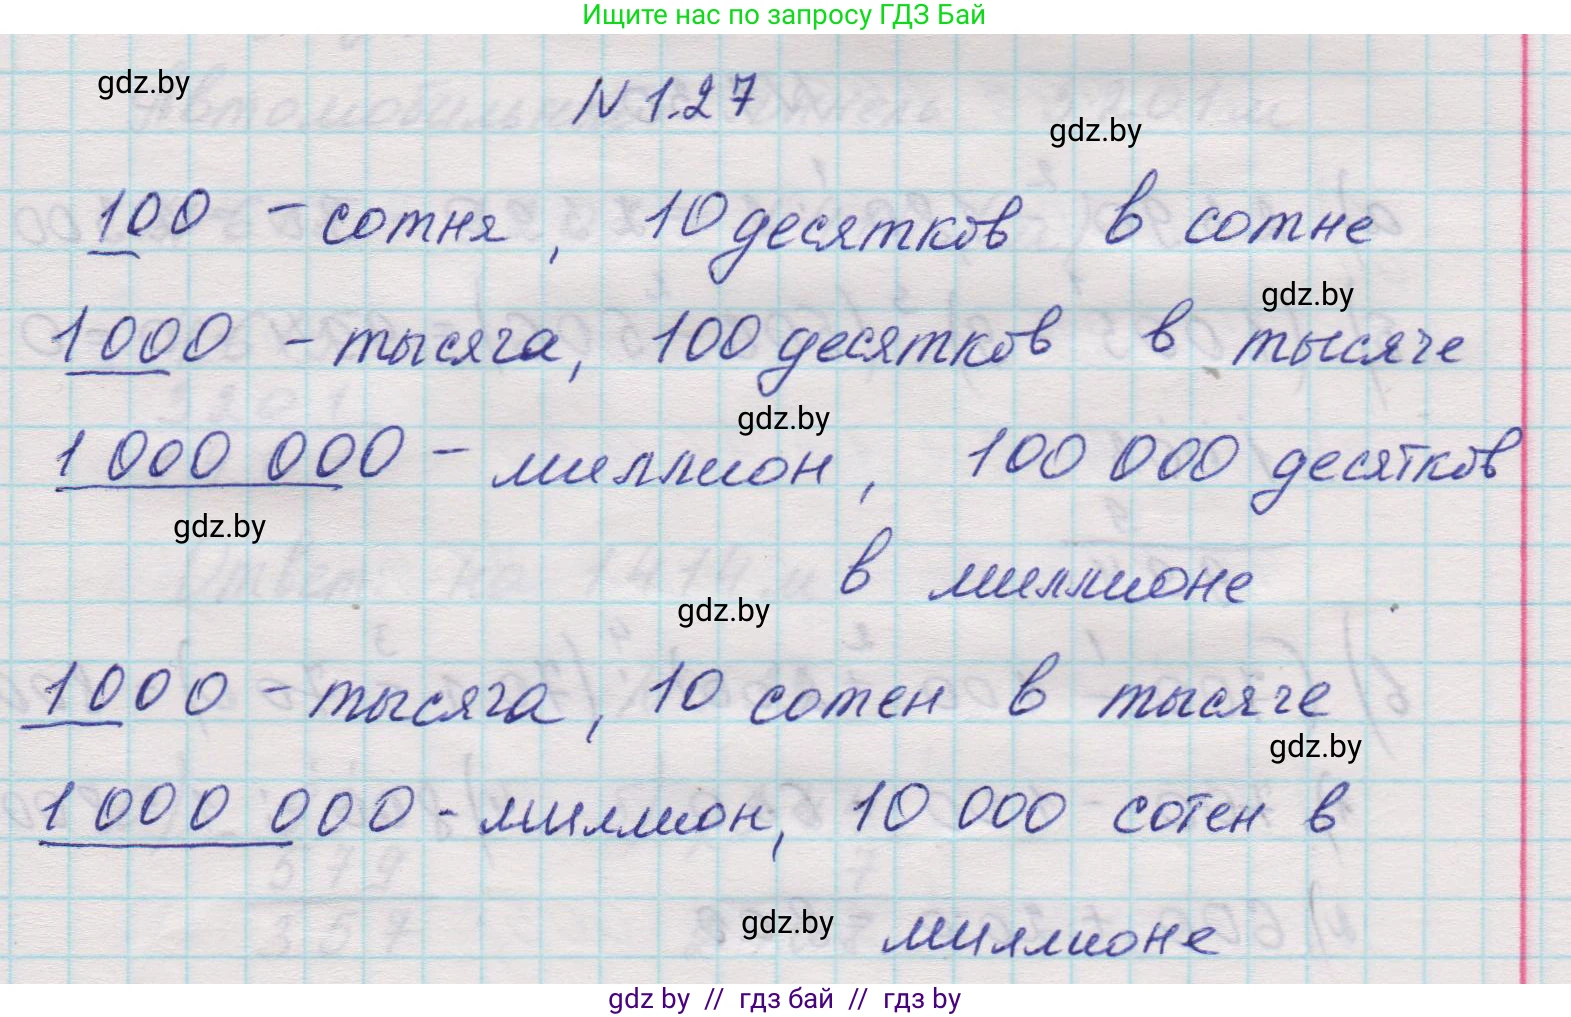 Ищите нас по запросу ГДЗ Бай
gdz.by
N 1.27
gdz.by
100 - сотня, 10 десятков в сотне
gdz.by
1000 - тысяча, 100 десятков в тысяче
gdz.by
1 000 000 - миллион, 100 000 десятков
gdz.by
в миллионе
gdz.by
1000 - тысяча, 10 сотен в тысяче
gdz.by
1 000 000 - миллион, 10 000 сотен в
gdz.by
миллионе
gdz by // гдз бай // гдз by